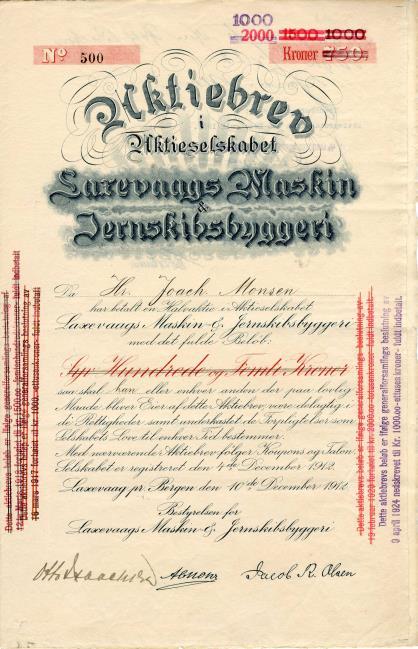 1000
2000. 1500 1000
No 500
Kroner 750.
Aktiebrev
i
Aktieselskabet
Laxevaags Maskin
&
Jernskibsbyggeri
Da Hr. Joach. Monsen
har betalt en Halvaktie i Aktieselskabet
Laxevaags Maskin- & Jernskibsbyggeri
med det fulde Beløb:
Syv Hundrede og Femti Kroner
saa skal han eller enhver anden der paa lovlig
Maade bliver Eier af dette Aktiebrev, være delagtig i
de Rettigheder samt underkastet de Forpligtelser som
Selskabets Love til enhver Tid bestemmer.
Med nærværende Aktiebrev følger Koupons og Talon.
Selskabet er registreret den 4de December 1912.
Laxevaag pr Bergen den 10de December 1912.
Bestyrelsen for
Laxevaags Maskin- & Jernskibsbyggeri
Jacob R. Olsen
Dette aktiebrevs beløb er ifølge generalforsamlings beslutning av
16 mars 1917 forhøiet til kr. 1000,-ettusenkroner- fuldt indbetalt
Dette aktiebrevs beløb er ifølge generalforsamlings beslutning av
19 februar 1920 forhøiet til kr. 2000.00-totusenkroner- fuldt indbetalt.
Dette aktiebrevs beløb er ifølge generalforsamlings beslutning av
9 april 1924 nedskrevet til Kr. 1000.00-ettusenkroner- fuldt indbetalt.